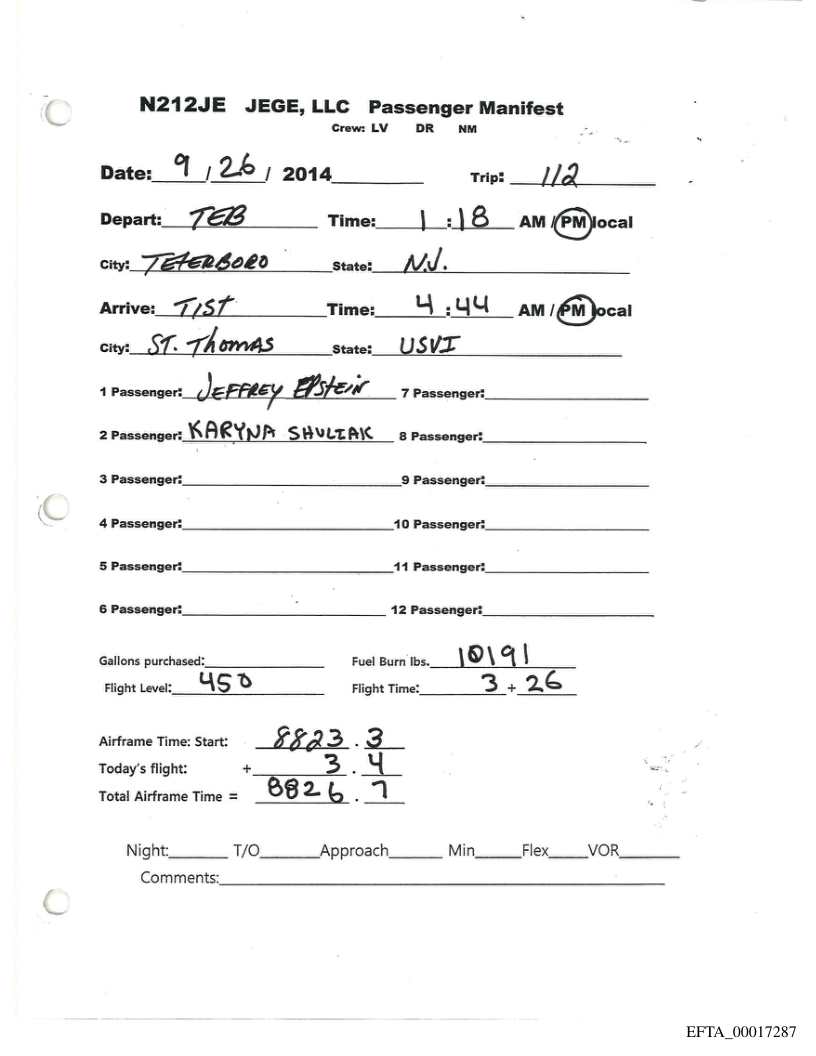 N212JE JEGE, LLC Passenger Manifest
Crew: LV DR NM
Date: 9 / 26 / 2014 Trip: 112
Depart: TEB Time: 1 : 18 AM / PM local
City: TETERBORO State: N.J.
Arrive: TIST Time: 4 : 44 AM / PM local
City: ST. THOMAS State: USVI
1 Passenger: JEFFREY EPSTEIN 7 Passenger:
2 Passenger: KARYNA SHULIAK 8 Passenger:
3 Passenger: 9 Passenger:
4 Passenger: 10 Passenger:
5 Passenger: 11 Passenger:
6 Passenger: 12 Passenger:
Gallons purchased: Fuel Burn lbs. 10191
Flight Level: 450 Flight Time: 3 + 26
Airframe Time: Start: 8823 . 3
Today's flight: + 3 . 4
Total Airframe Time = 8826 . 7
Night: T/O Approach Min Flex VOR
Comments:
EFTA_00017287